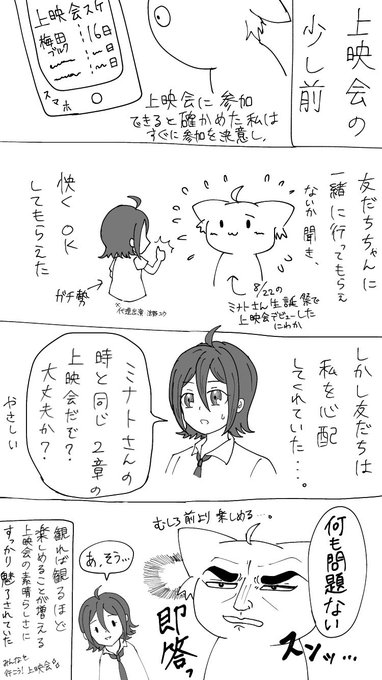 上映会の
少し前
上映会スケ
梅田
ブルク
16日
日
日
スマホ
上映会に参加
できると確かめた私は
すぐに参加を決意し、
友だちちゃんに
一緒に行ってもらえ
ないか聞き、
8/22の
ミナトさん生誕祭で
上映会デビューした
にわか
快くOK
してもらえた
ガチ勢
しかし友だちは
私を心配
してくれていた…。
ミナトさんの
時と同じ2章の
上映会だで?
大丈夫か?
やさしい
何も問題ない
スンッ…
むしろ前より楽しめる…。
即答っ
あ、そう…
観れば観るほど
楽しめることが増える
上映会の素晴らしさに
すっかり魅了されていた
みんなも
行こう!上映会